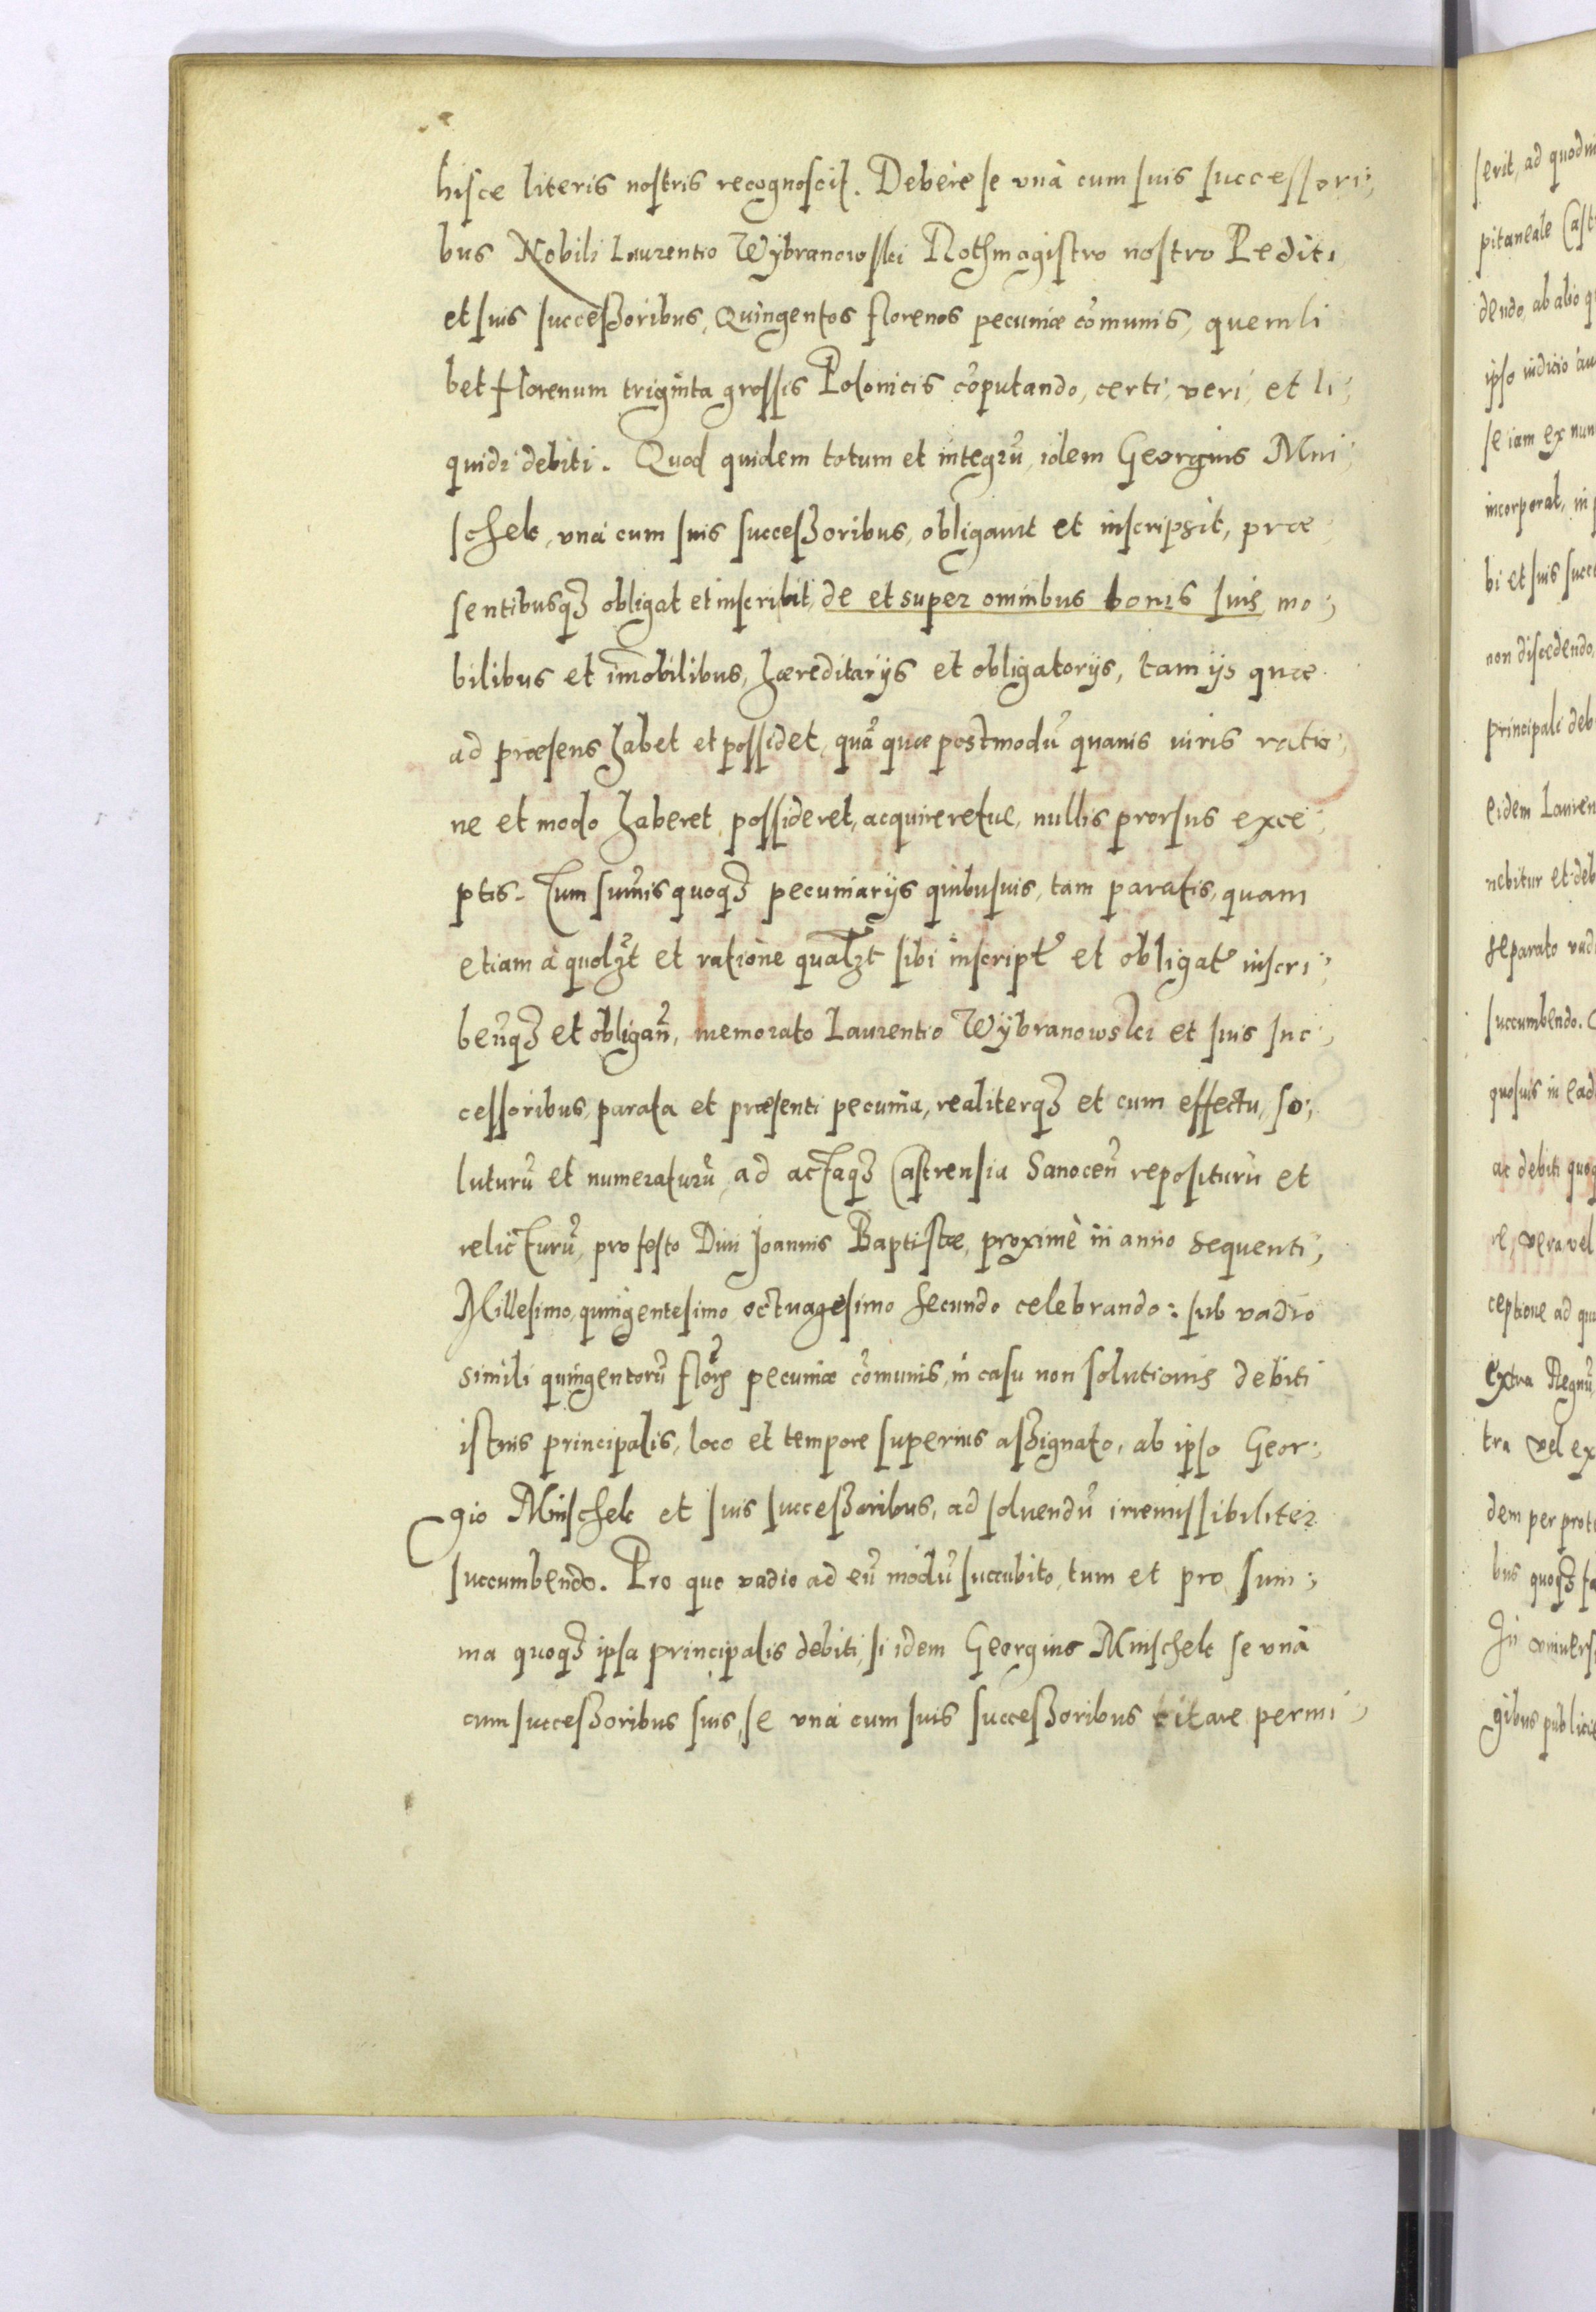 hisce literis nostris recognoscit. Debere se unà cum suis successori;
bus Nobili Laurentio Wÿbranowski Rothmagistro nostro Pediti
et suis successoribus, Quingentos florenos pecuniæ cõmunis, quemli
bet florenum triginta grossis Polonicis cõputando, certi, veri, et li;
quidi debiti. Quod quidem totum et integrũ, idem Georgius Mni;
schek, unà cum suis successoribus, obligavit et inscripsit, præ;
sentibusqȝ obligat et inscribit, de et super omnibus bonis suis mo;
bilibus et im̃obilibus, hæreditarijs et obligatorijs, tam ijs quæ
ad præsens habet et possidet, quã quæ postmodũ quamis iuris ratio;
ne et modo haberet possideret, acquireretue, nullis prorsus exce;
ptis. Tum sum̃is quoqȝ pecuniarijs quibusuis, tam paratis, quam
etiam à quolȝt et ratione qualȝt sibi inscript̃ et obligat̃ inscri;
beñqȝ et obligañ, memorato Laurentio Wÿbranowski et suis suc;
cessoribus, parata et præsenti pecunia, realiterqȝ et cum effectu, so;
luturũ et numeraturũ, ad actaqȝ Castrensia Sanoceñ repositurũ et
relicturũ, pro festo Diui Joannis Baptistæ, proximè in anno sequenti;
Millesimo, quingentesimo octuagesimo secundo celebrando: sub vadio
simili quingentorũ floꝝ pecuniæ cõmunis, in casu non solutionis debiti
istius principalis, loco et tempore superius assignato, ab ipso Geor;
gio Mnischek et suis successoribus, ad soluendũ irremissibiliter
succumbendo. Pro quo vadio ad eũ modũ succubito, tum et pro sum;
ma quoqȝ ipsa principalis debiti, si idem Georgius Mnischek se unà
cum successoribus suis, se unà cum suis successoribus citare permi;
serit, ad quodui
pitaneale Cast
dendo, ab alio q
ipso iudicio
se iam ex nun
incorporat, in
bi et suis succ
non discedendo,
principali deb
eidem Lauren
nebitur et deb
separato vad
succumbendo.
quosuis in ead
ac debiti quoq
re, vera vel
ceptione ad qu
extra Regnũ
tra vel ex
dem per prot
bus quoqȝ fa
In uniuers
gibus publicis